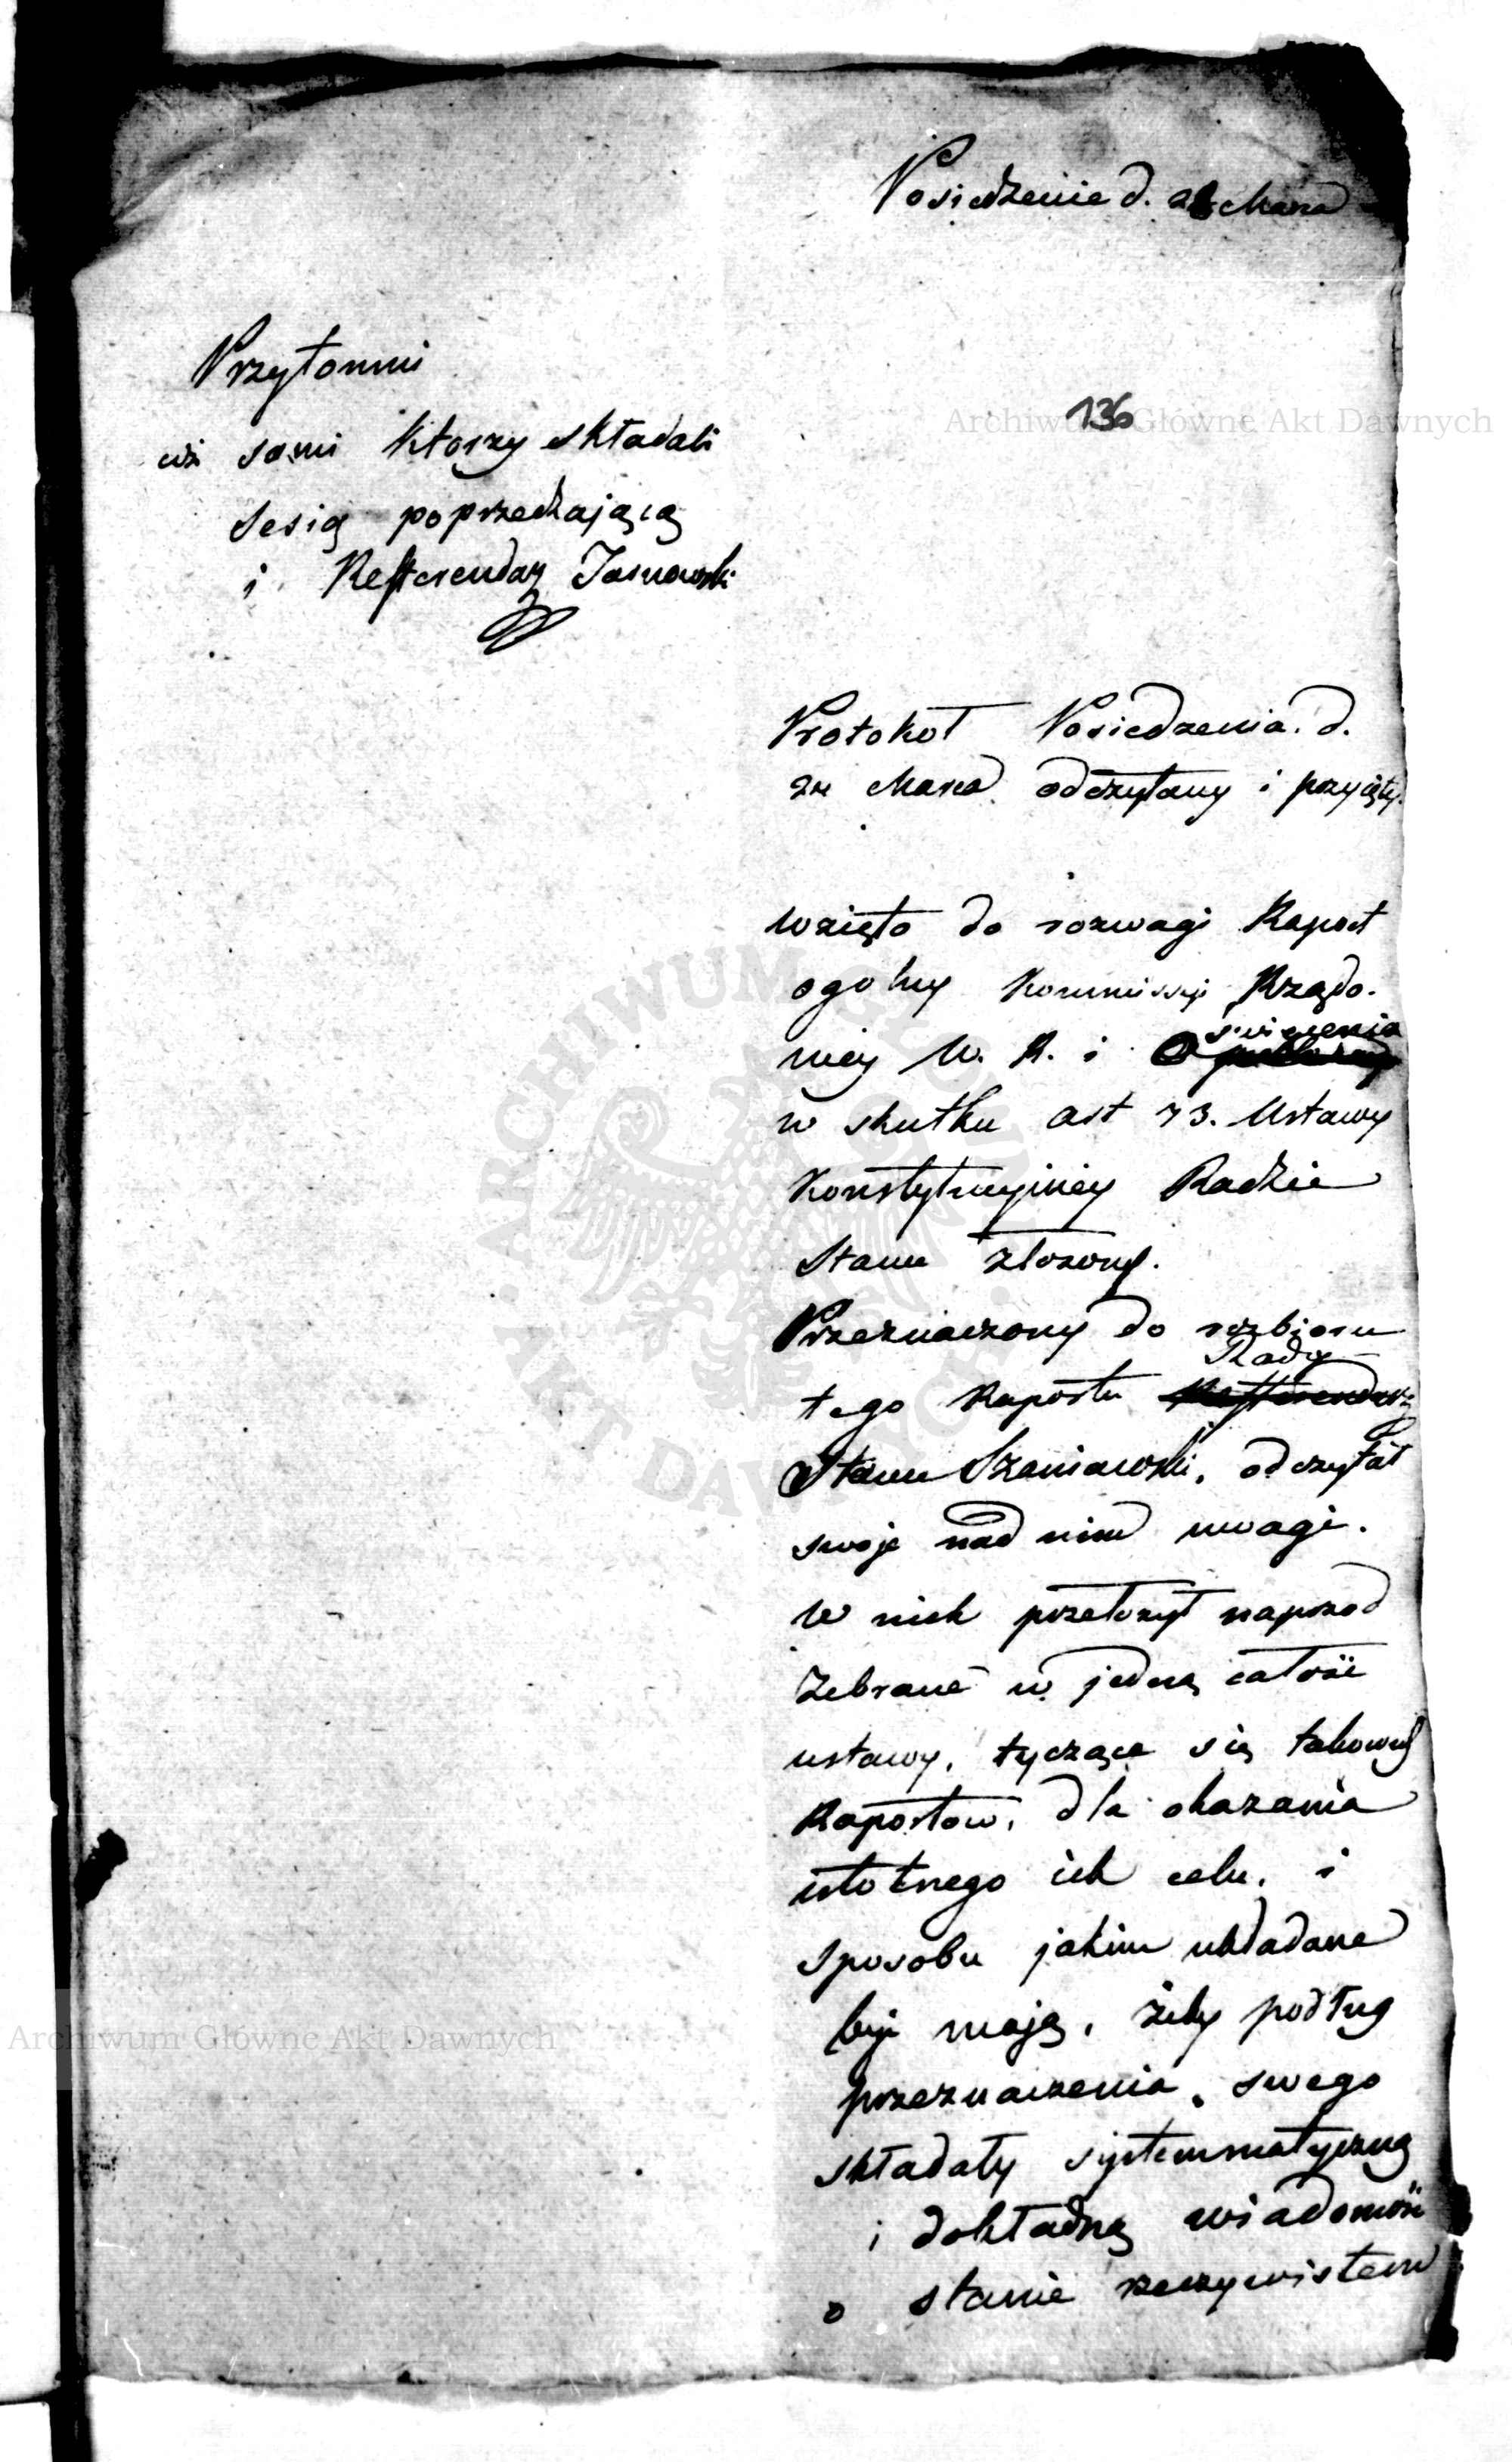 Posiedzenie d. 28 Marca
136
Przytomni
ciż sami ktorzy składali
Sesią poprzedzaiącą
i Refferendarz Tarnowski
Protokoł Posiedzenia d.
24 Marca odczytany i przyięty.
Wzięto do rozwagi Raport
ogolny Kommissyi Rządo-
wey W. R. i Oświecenia
w skutku art 73. Ustawy
Konstytucyiney Radzie
Stanu złożony.
Przeznaczony do rozbioru
tego Raportu Refferendarz Radca
Stanu Szaniawski, odczytał
swoje nad nim uwagi.
W nich przełożył naprzod
Zebrane w jedną całość
ustawy, tyczące się takowych
Raportow, dla okazania
istotnego ich celu, i
sposobu jakim układane
być mają, żeby podług
przeznaczenia swego
składały systemmatyczną
i dokładną wiadomość
o stanie rzeczywistem
Archiwum Główne Akt Dawnych
Archiwum Główne Akt Dawnych
ARCHIWUM GŁÓWNE AKT DAWNYCH